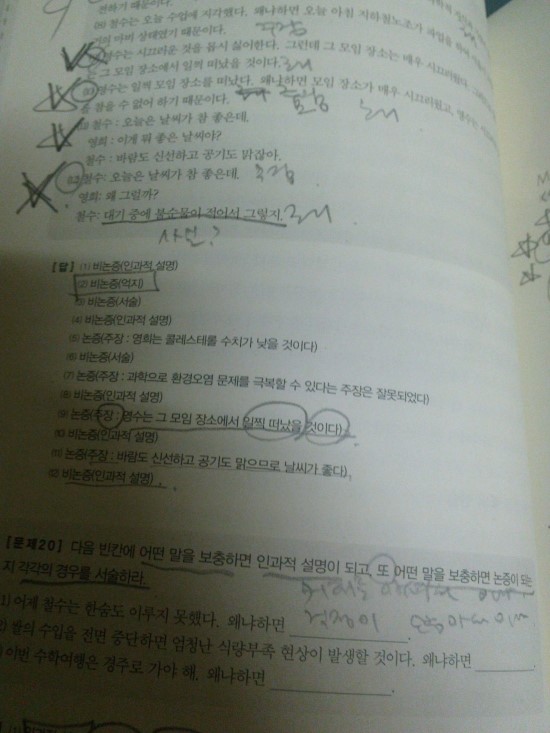 전하기 때문이다.
(8) 철수는 오늘 수업에 지각했다. 왜냐하면 오늘 아침 지하철노조가 파업을
마비 상태였기 때문이다.
영수는 시끄러운 것을 몹시 싫어한다. 그런데 그 모임 장소는 매우 시끄러웠다.
는 그 모임 장소에서 일찍 떠났을 것이다.
(10) 영수는 일찍 모임 장소를 떠났다. 왜냐하면 모임 장소가 매우 시끄러웠고, 영수는
참을 수 없어 하기 때문이다.
철수 : 오늘은 날씨가 참 좋은데.
영희 : 이게 뭐 좋은 날씨야?
철수 : 바람도 신선하고 공기도 맑잖아.
(12) 철수: 오늘은 날씨가 참 좋은데. 주장
영희: 왜 그럴까?
철수: 대기 중에 불순물이 적어서 그렇지.
사건?
[답] (1) 비논증(인과적 설명)
(2) 비논증(억지)
(3) 비논증(서술)
(4) 비논증(인과적 설명)
(5) 논증(주장 : 영희는 콜레스테롤 수치가 낮을 것이다)
(6) 비논증(서술)
(7) 논증(주장 : 과학으로 환경오염 문제를 극복할 수 있다는 주장은 잘못되었다)
(8) 비논증(인과적 설명)
(9) 논증(주장 : 영수는 그 모임 장소에서 일찍 떠났을 것이다)
(10) 비논증(인과적 설명)
(11) 논증(주장 : 바람도 신선하고 공기도 맑으므로 날씨가 좋다)
(12) 비논증(인과적 설명)
[문제20] 다음 빈칸에 어떤 말을 보충하면 인과적 설명이 되고, 또 어떤 말을 보충하면 논증이 되는
지 각각의 경우를 서술하라.
1) 어제 철수는 한숨도 이루지 못했다. 왜냐하면
걱정이
2) 쌀의 수입을 전면 중단하면 엄청난 식량부족 현상이 발생할 것이다. 왜냐하면
이번 수학여행은 경주로 가야 해. 왜냐하면